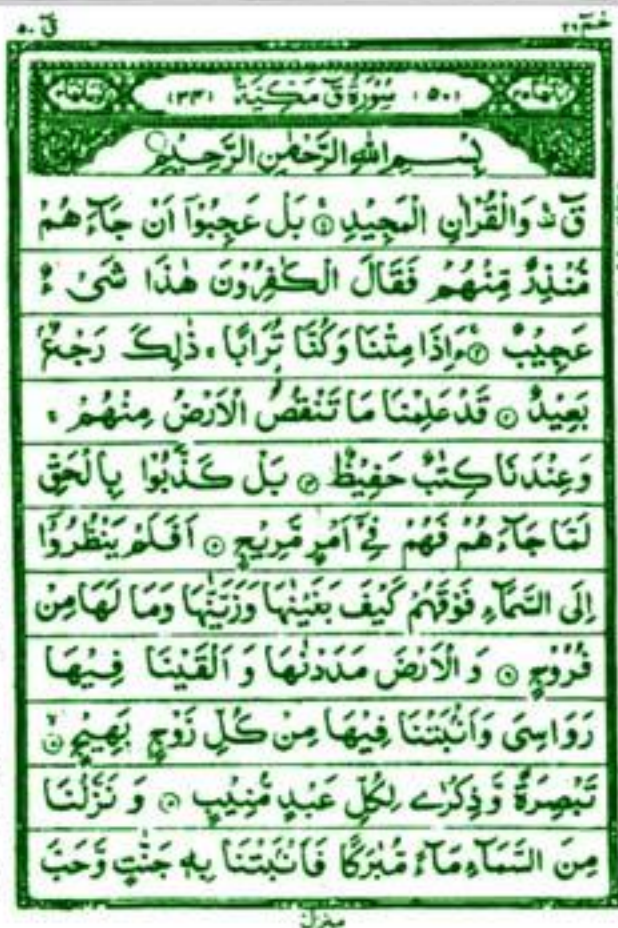 حٰمٓ ٢٦ قٓ ٥٠
اٰيَاتُهَا ٤٥ (٥٠) سُوْرَةُ قٓ مَكِّيَّةٌ (٣٤) رُكُوْعَاتُهَا ٣
بِسْمِ اللهِ الرَّحْمٰنِ الرَّحِيْمِ
قٓ ۚ وَالْقُرْاٰنِ الْمَجِيْدِ ۝١ بَلْ عَجِبُوْۤا اَنْ جَآءَهُمْ
مُّنْذِرٌ مِّنْهُمْ فَقَالَ الْكٰفِرُوْنَ هٰذَا شَىْءٌ
عَجِيْبٌ ۝٢ ءَاِذَا مِتْنَا وَكُنَّا تُرَابًا ۚ ذٰلِكَ رَجْعٌۢ
بَعِيْدٌ ۝٣ قَدْ عَلِمْنَا مَا تَنْقُصُ الْاَرْضُ مِنْهُمْ ۚ
وَعِنْدَنَا كِتٰبٌ حَفِيْظٌ ۝٤ بَلْ كَذَّبُوْا بِالْحَقِّ
لَمَّا جَآءَهُمْ فَهُمْ فِىْۤ اَمْرٍ مَّرِيْجٍ ۝٥ اَفَلَمْ يَنْظُرُوْۤا
اِلَى السَّمَآءِ فَوْقَهُمْ كَيْفَ بَنَيْنٰهَا وَزَيَّنّٰهَا وَمَا لَهَا مِنْ
فُرُوْجٍ ۝٦ وَالْاَرْضَ مَدَدْنٰهَا وَاَلْقَيْنَا فِيْهَا
رَوَاسِىَ وَاَنْۢبَتْنَا فِيْهَا مِنْ كُلِّ زَوْجٍۭ بَهِيْجٍ ۝٧
تَبْصِرَةً وَّذِكْرٰى لِكُلِّ عَبْدٍ مُّنِيْبٍ ۝٨ وَنَزَّلْنَا
مِنَ السَّمَآءِ مَآءً مُّبٰرَكًا فَاَنْۢبَتْنَا بِهٖ جَنّٰتٍ وَّحَبَّ
منزل